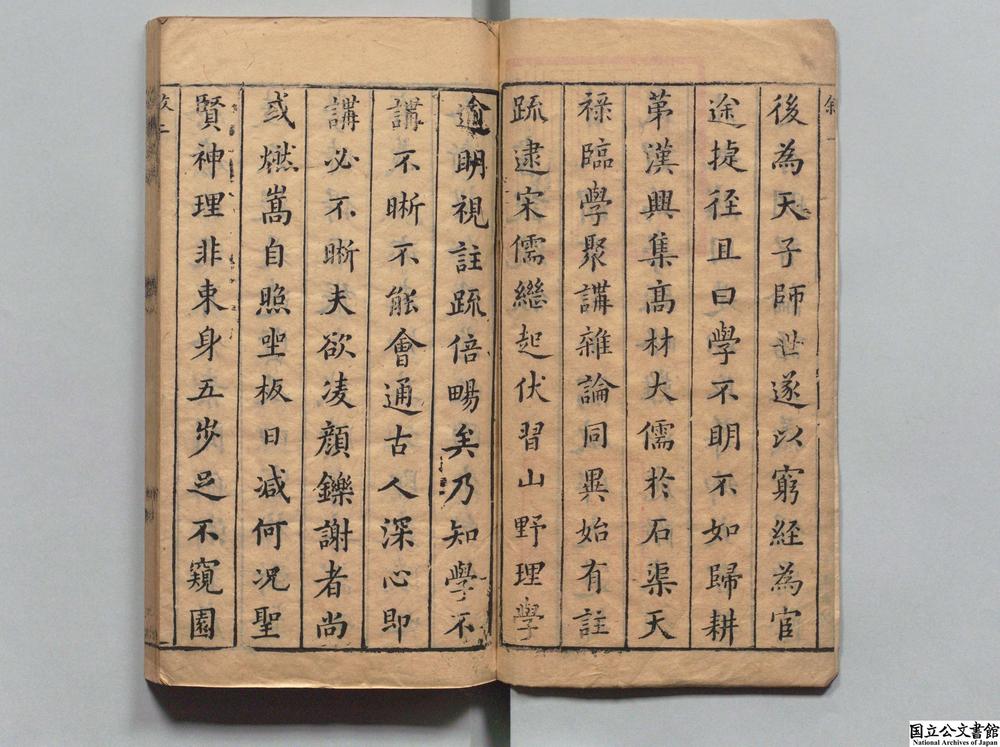 後為天子師世遂以窮經為官
途捷徑且曰學不明不如歸耕
苐漢興集髙材大儒於石渠天
祿臨學聚講雜論同異始有註
疏逮宋儒繼起伏習山野理學
逾明視註疏倍暢矣乃知學不
講不晣不能會通古人深心即
講必不晣夫欲凌顏鑠謝者尚
或燃嵩自照坐板日减何況聖
賢神理非束身五步足不窺園
国立公文書館
National Archives of Japan